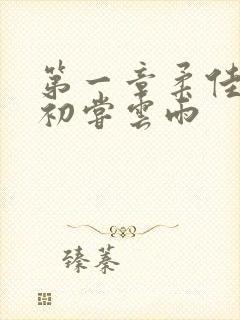 第一章柔佳
初嘗雲雨
臻蓁